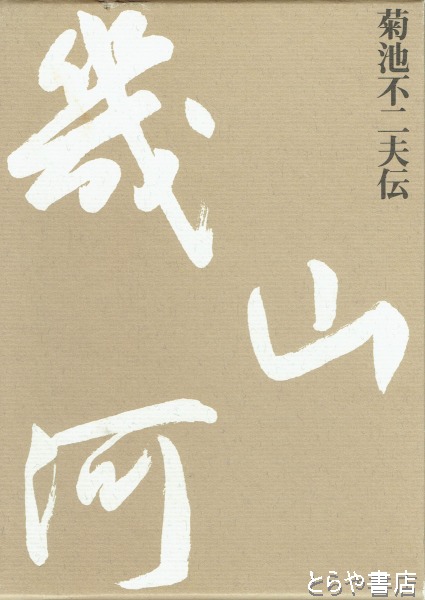 菊池不二夫伝
幾山河
とらや書店